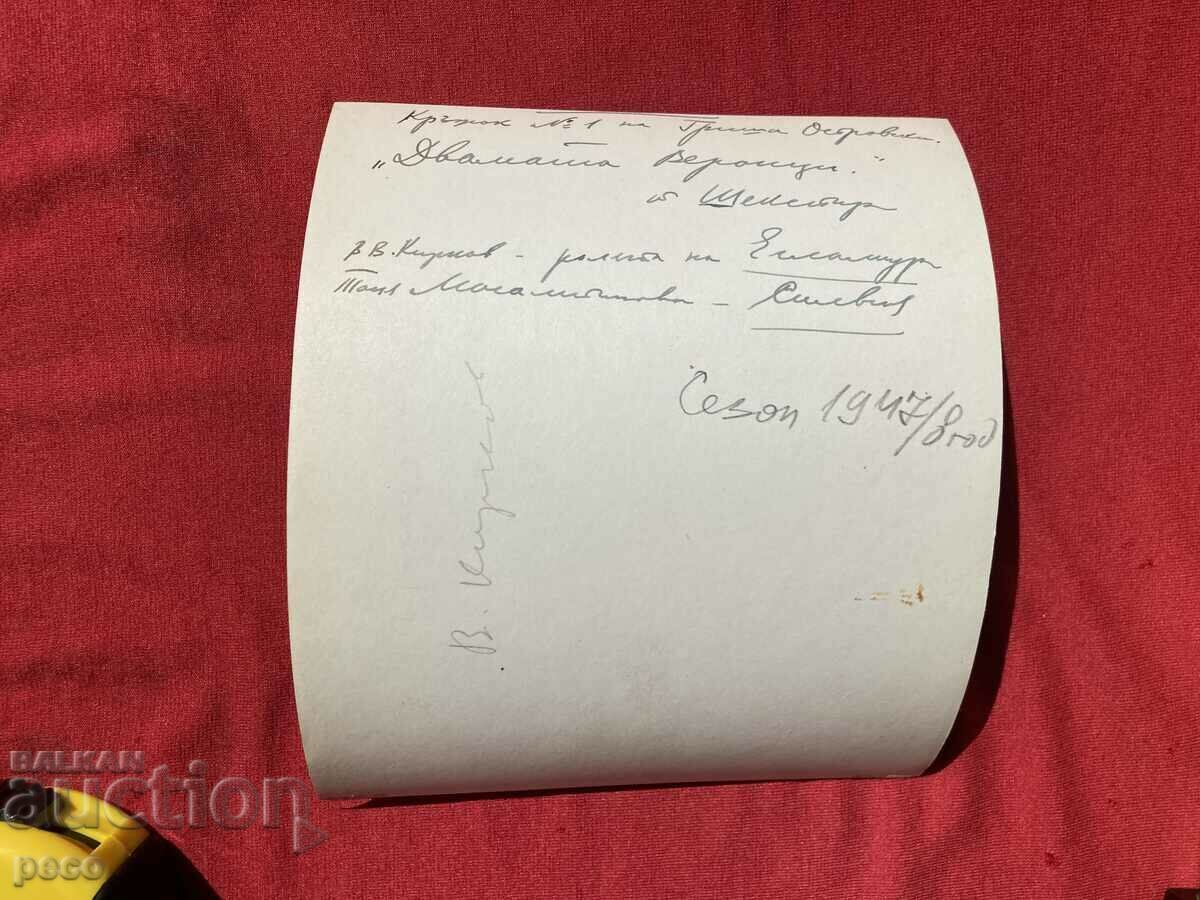 Кръжок № 1 на Гриша Островски.
„Двамата Веронци."
от Шекспир
В. Кирков - ролята на Егламур
Таня Масалитинова - Силвия
Сезон 1947/8 год
В. Кирков
BALKAN
auction
peco